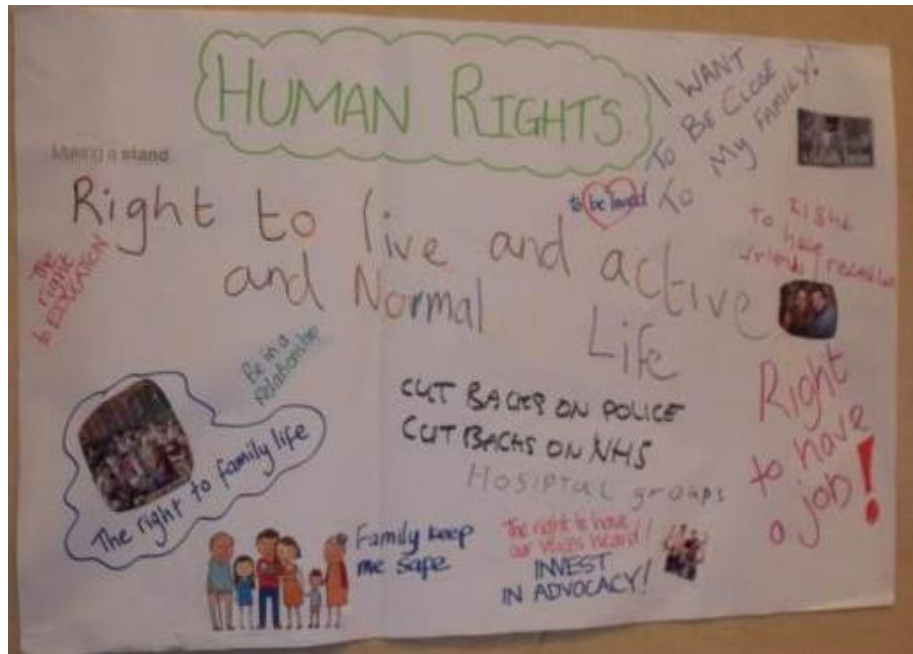 HUMAN RIGHTS
I WANT
TO BE CLOSE
TO MY FAMILY!
Making a stand
to be loved
Right to live and active
and Normal Life
The
right
to EDUCATION
Right
to have
friends /
Be in a
relationship
The right to family life
CUT BACKS ON POLICE
CUT BACKS ON NHS
HOSIPTAL groups
Right
to have
a job!
Family keep
me safe
The right to have
our voices heard!
INVEST
IN ADVOCACY!